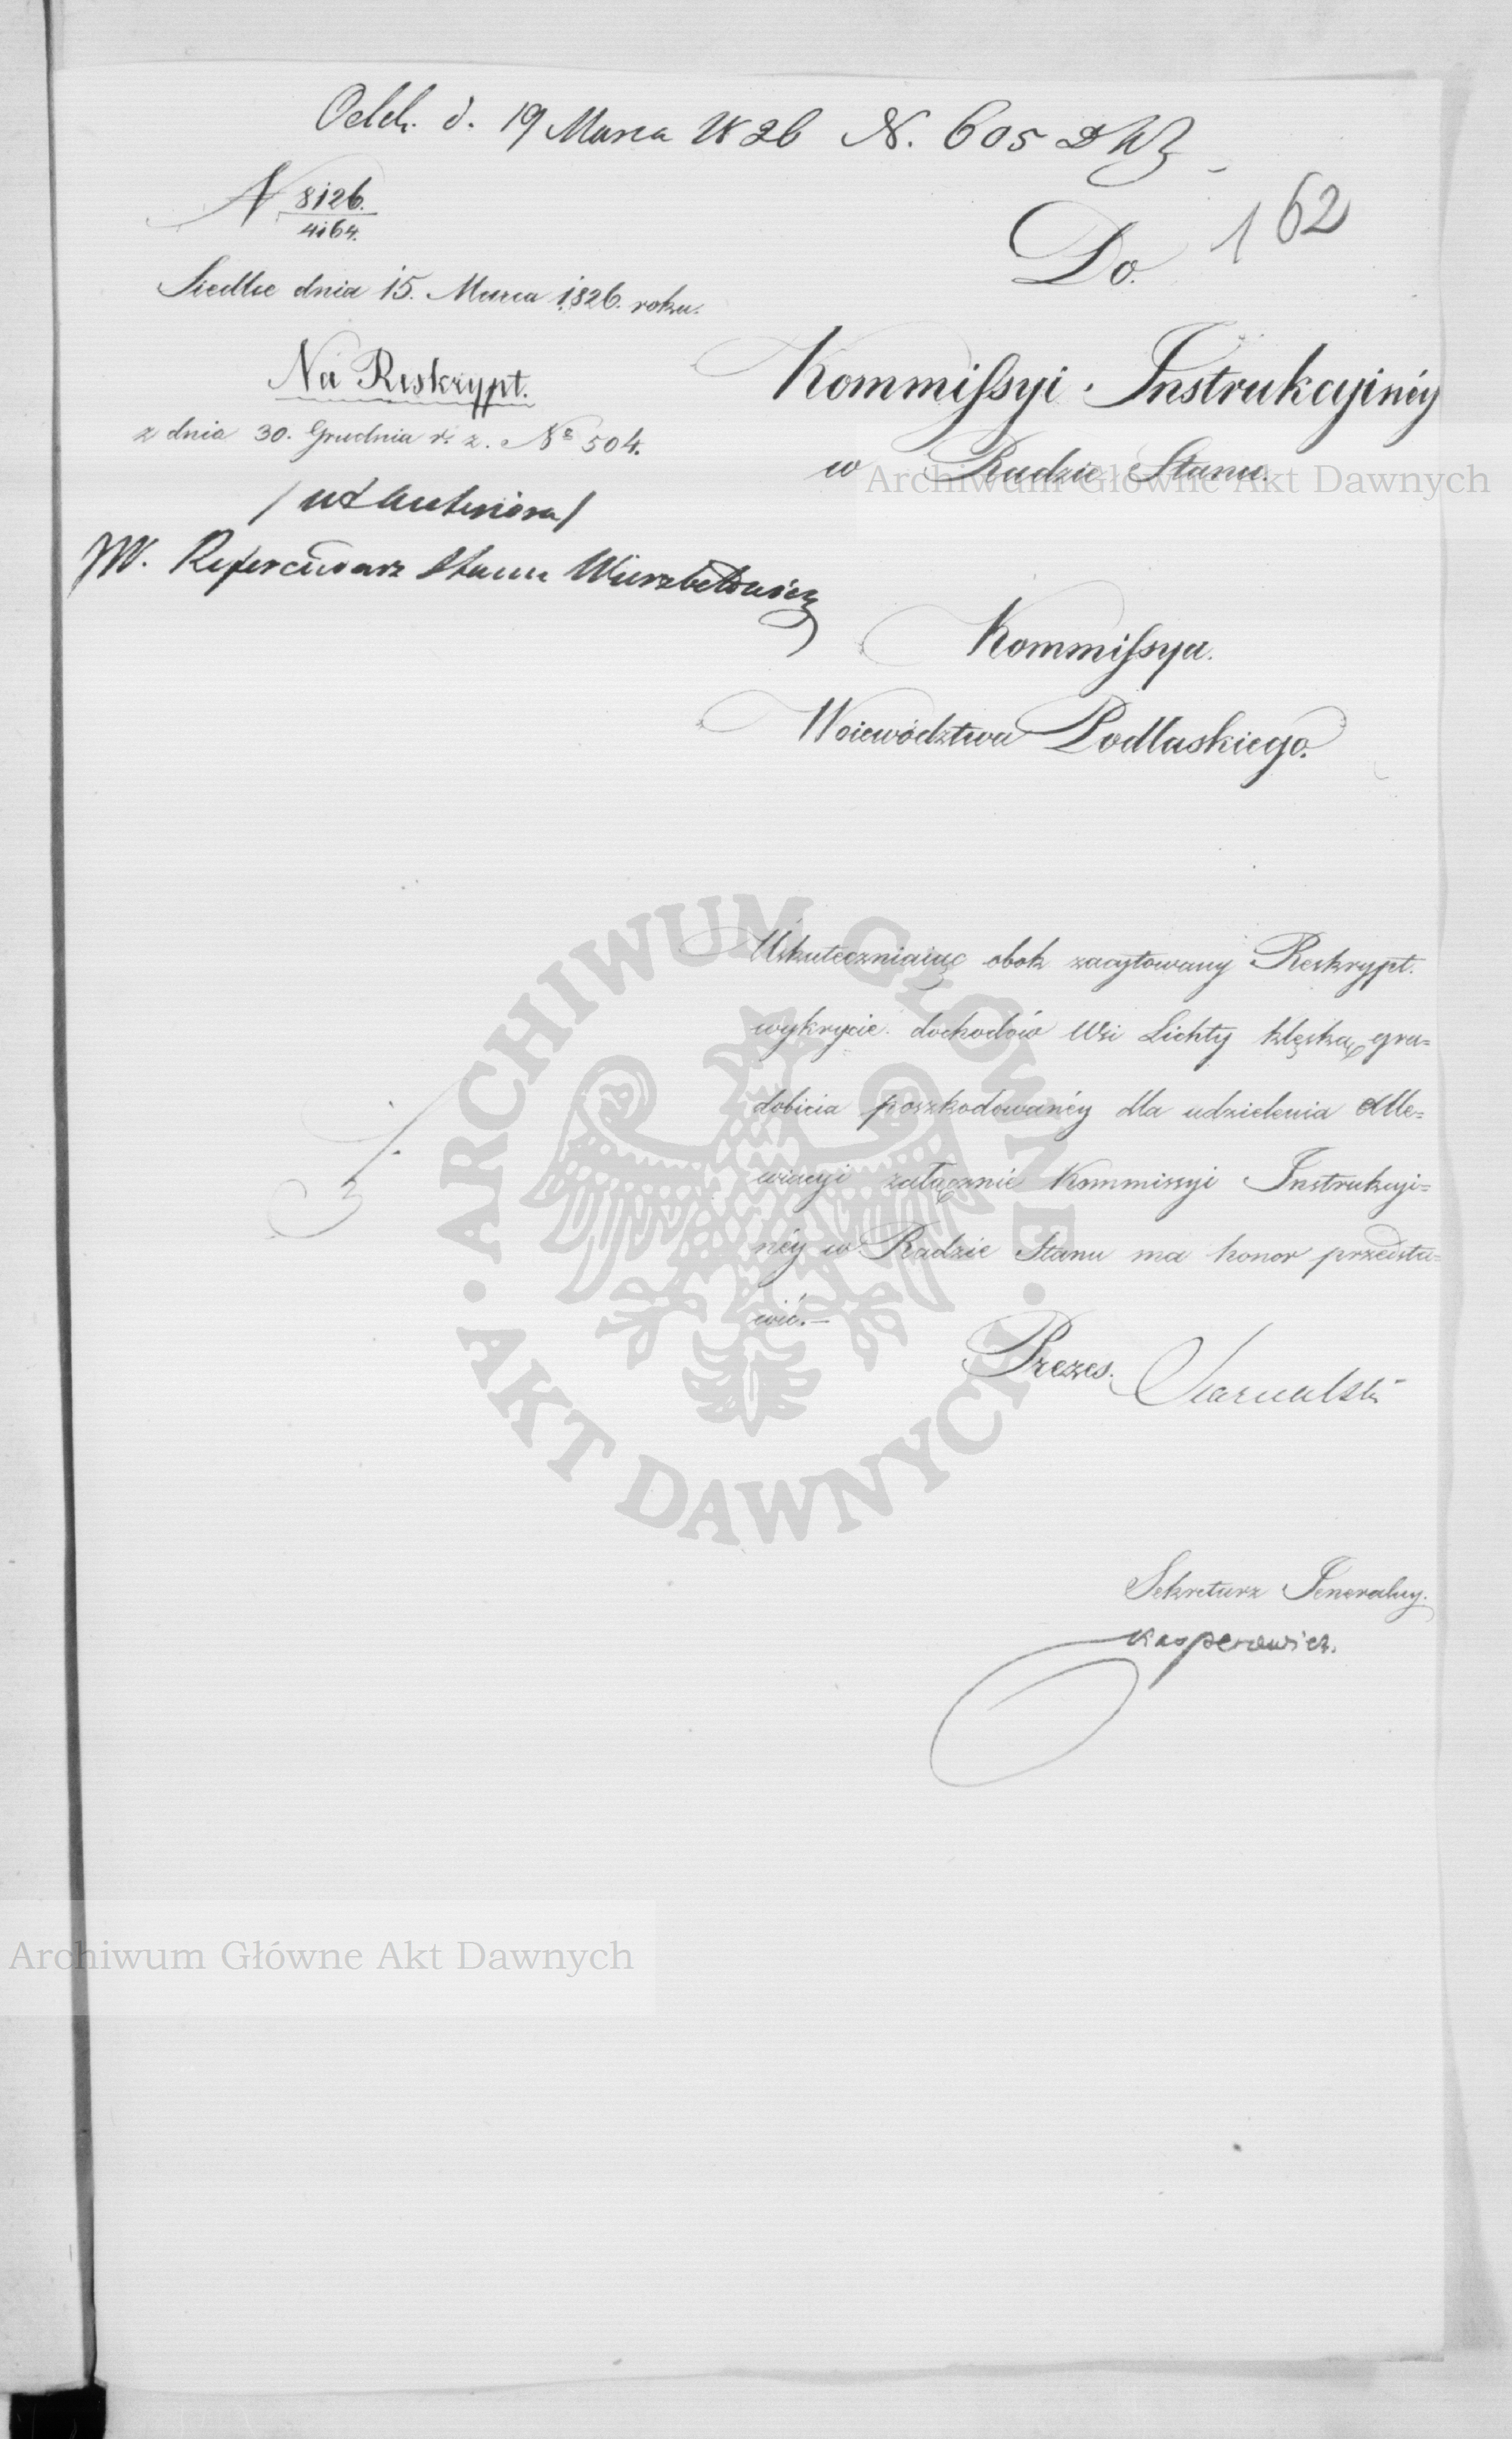 Odd. d. 19 Marca 1826 N. 605
162
N 8126.
4164.
Siedlce dnia 15. Marca 1826. roku.
Na Reskrypt.
z dnia 30. Grudnia r. z. No 504.
/ ut anteriora /
JW. Referendarz Stanu
Do.
Kommissyi Instrukcyinéy
w Radzie Stanu.
Kommissya.
Woiewództwa Podlaskiego.
Uskuteczniaiąc obok zacytowany Reskrypt.
wykrycie dochodów Wsi Lichty klęską gra=
dobicia poszkodowanéy dla udzielenia Alle=
wiacyi załącznie Kommissyi Instrukcyi=
néy w Radzie Stanu ma honor przedsta=
wić.—
Prezes.
Sekretarz Jeneralny.
Kasperowicz.
Archiwum Główne Akt Dawnych
ARCHIWUM GŁÓWNE • AKT DAWNYCH •
Archiwum Główne Akt Dawnych